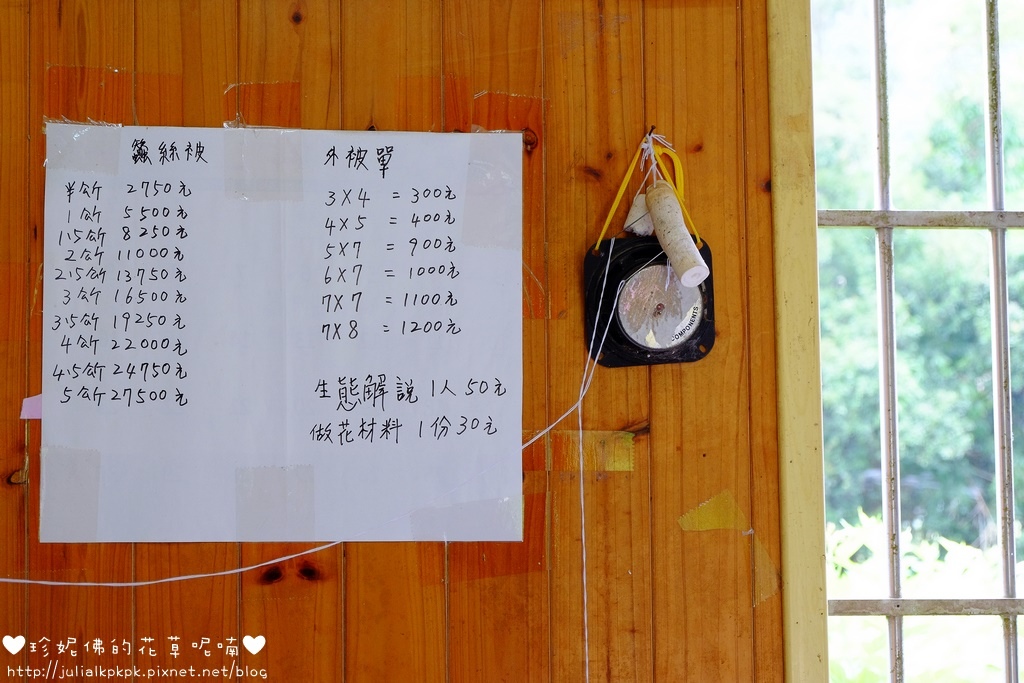 蠶絲被
半公斤 2750元
1公斤 5500元
1.5公斤 8250元
2公斤 11000元
2.5公斤 13750元
3公斤 16500元
3.5公斤 19250元
4公斤 22000元
4.5公斤 24750元
5公斤 27500元
外被單
3X4 = 300元
4X5 = 400元
5X7 = 900元
6X7 = 1000元
7X7 = 1100元
7X8 = 1200元
生態解說 1人50元
做花材料 1份30元
COMPONENTS
♥珍妮佛的花草呢喃♥
http://julialkpkpk.pixnet.net/blog